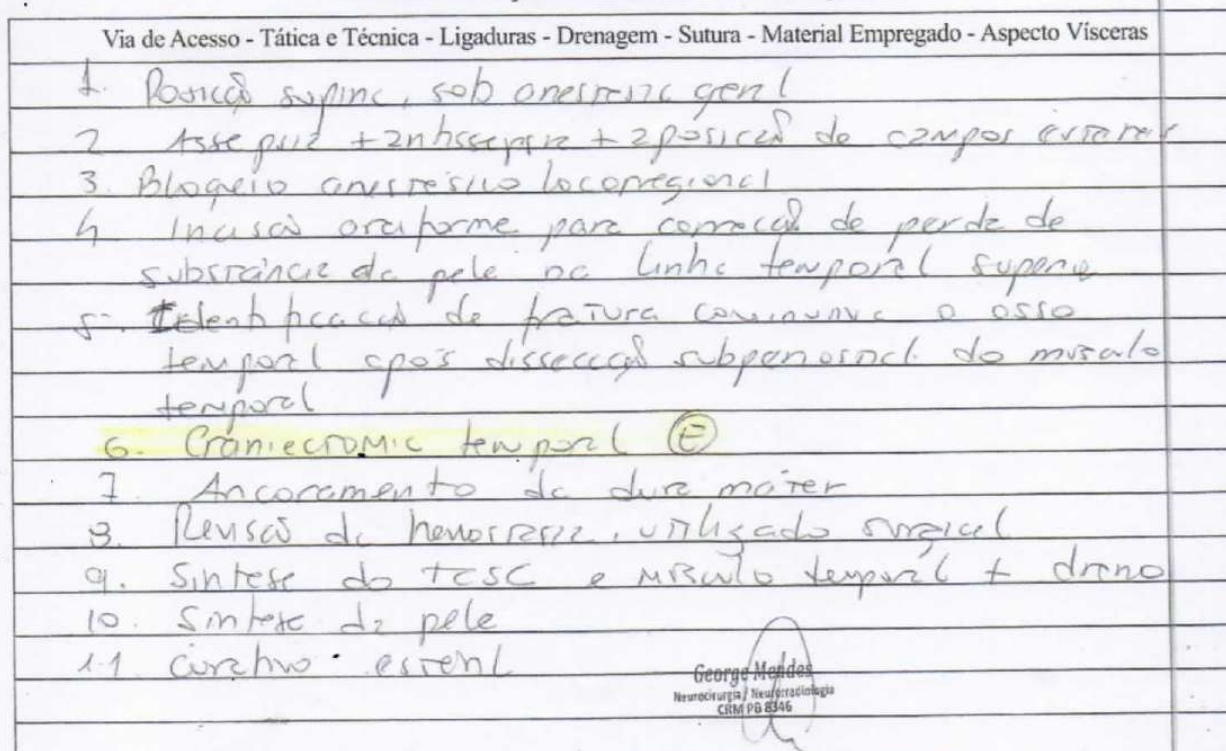 Via de Acesso - Tática e Técnica - Ligaduras - Drenagem - Sutura - Material Empregado - Aspecto Vísceras
1. Posição supina, sob anestesia geral
2 Assepsia + antissepsia + aposição de campos estéreis
3. Bloqueio anestésico locorregional
4 Incisão para correção de perda de
substância da pele na linha temporal superior
5. Identificação de fratura cominutiva o osso
temporal após dissecção subperiosteal do músculo
temporal
6. Craniectomia temporal E
7. Ancoramento da dura mater
8. Revisão da hemostasia, utilizado surgicel
9. Síntese do TCSC e músculo temporal + dreno
10. Síntese da pele
11 curativo estéril
George Mendes
Neurocirurgia / Neurorradiologia
CRM PB 8346